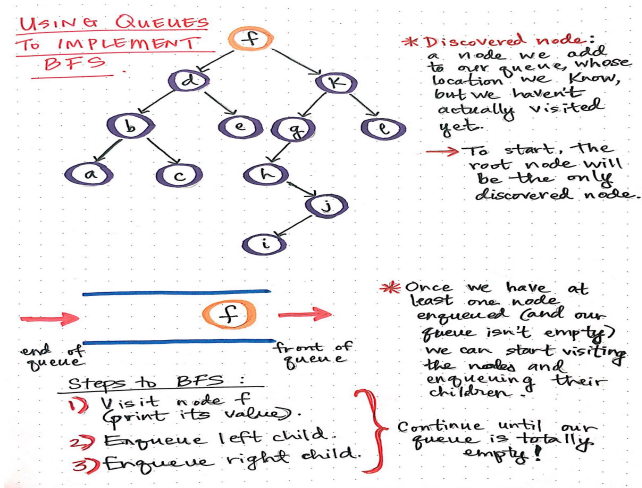 USING QUEUES
TO IMPLEMENT
BFS.
f
d
k
b
e
g
l
a
c
h
j
i
* Discovered node:
a node we add
to our queue, whose
location we know,
but we haven't
actually visited
yet.
→ To start, the
root node will
be the only
discovered node.
f
end of
queue
front of
queue
* Once we have at
least one node
enqueued (and our
queue isn't empty)
we can start visiting
the nodes and
enqueueing their
children.
Steps to BFS:
1) Visit node f
(print its value).
2) Enqueue left child.
3) Enqueue right child.
Continue until our
queue is totally
empty!